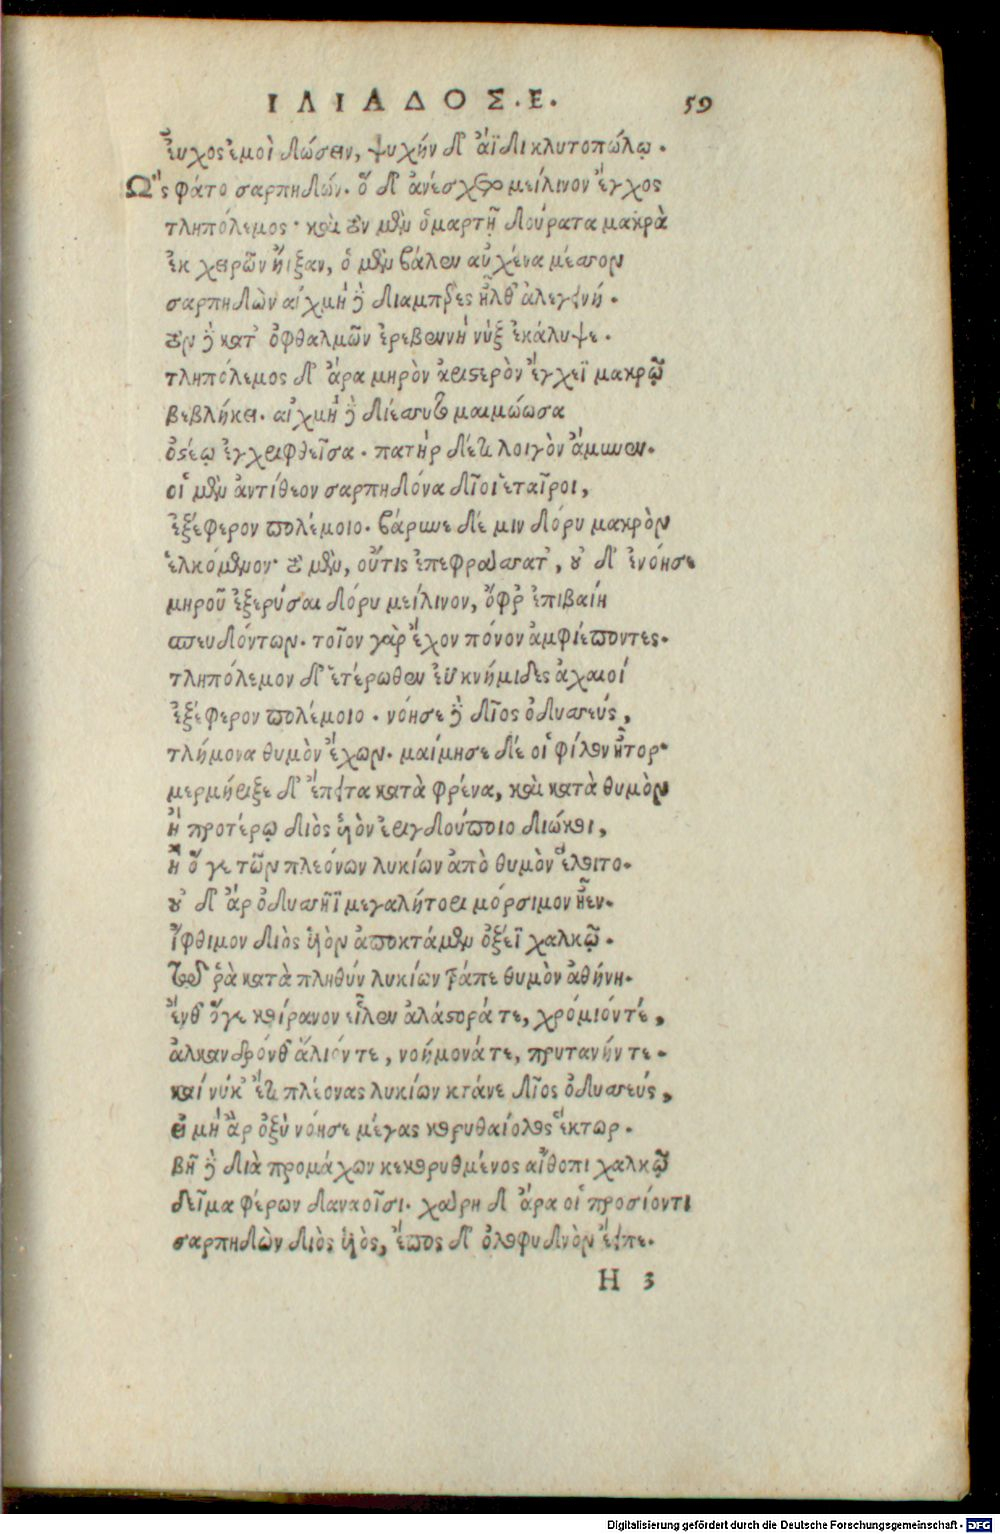 ΙΛΙΑΔΟΣ. Ε. 59
εὖχος ἐμοὶ δώσειν, ψυχήν δ' ἄϊδι κλυτοπώλῳ.
Ὣς φάτο σαρπηδών. ὅ δ' ἀνέσχετο μείλινον ἔγχος
τληπόλεμος· καὶ τῶν μὲν ὁμαρτῆ δούρατα μακρὰ
ἐκ χειρῶν ἤϊξαν, ὁ μὲν βάλεν αὐχένα μέσσον
σαρπηδὼν αἰχμὴ δὲ διαμπερὲς ἦλθ' ἀλεγεινή.
τὸν δὲ κατ' ὀφθαλμῶν ἐρεβεννὴ νὺξ ἐκάλυψε.
τληπόλεμος δ' ἄρα μηρὸν ἀριστερὸν ἔγχεϊ μακρῷ
βεβλήκει. αἰχμὴ δὲ διέσσυτο μαιμώωσα
ὀστέῳ ἐγχριφθεῖσα. πατὴρ δ' ἔτι λοιγὸν ἄμυνεν.
οἱ μὲν ἀντίθεον σαρπηδόνα δῖοι ἑταῖροι,
ἐξέφερον πολέμοιο. βάρυνε δέ μιν δόρυ μακρὸν
ἑλκόμενον· τὸ μὲν, οὔτις ἐπεφράσατ', οὐδ' ἐνόησε
μηροῦ ἐξερύσαι δόρυ μείλινον, ὄφρ' ἐπιβαίη
σπευδόντων. τοῖον γὰρ ἔχον πόνον ἀμφιέποντες.
τληπόλεμον δ' ἑτέρωθεν ἐϋκνήμιδες ἀχαιοί
ἐξέφερον πολέμοιο. νόησε δὲ δῖος ὀδυσσεύς,
τλήμονα θυμὸν ἔχων. μαίμησε δέ οἱ φίλον ἦτορ·
μερμήριξε δ' ἔπειτα κατὰ φρένα, καὶ κατὰ θυμὸν
ἢ προτέρω διὸς υἱὸν ἐριγδούποιο διώκοι,
ἢ ὅ γε τῶν πλεόνων λυκίων ἀπὸ θυμὸν ἕλοιτο.
οὐδ' ἄρ ὀδυσσῆϊ μεγαλήτορι μόρσιμον ἦεν.
ἴφθιμον διὸς υἱὸν ἀποκτάμεν ὀξέϊ χαλκῷ.
τῷ ῥὰ κατὰ πληθύν λυκίων τράπε θυμὸν ἀθήνη.
ἔνθ' ὅγε κοίρανον εἷλεν ἀλάστορά τε, χρόμιόν τέ,
ἄλκανδρόνθ' ἅλιόν τε, νοήμονά τε, πρυτανήν τε.
καί νύκ' ἔτι πλέονας λυκίων κτάνε δῖος ὀδυσσεύς,
εἰ μὴ ἂρ ὀξὺ νόησε μέγας κορυθαίολος ἕκτωρ.
βῆ δὲ διὰ προμάχων κεκορυθμένος αἴθοπι χαλκῷ
δεῖμα φέρων δαναοῖσι. χάρη δ' ἄρα οἱ προσίοντι
σαρπηδὼν διὸς υἱὸς, ἔπος δ' ὀλοφυδνὸν ἔειπε.
H 3
Digitalisierung gefördert durch die Deutsche Forschungsgemeinschaft - DFG